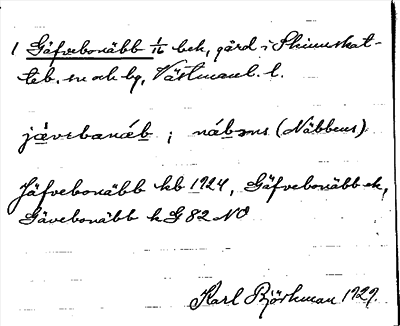 1 Gäfvebonäbb 1/16 bek, gård i Skinnskat-
teb. sn och bg, Västmanl. l.
jævebanáb ; nábəns (Näbbens)
Jäfvebonäbb kb 1724, Gäfvebonäbb ek,
Gävebonäbb kG 82 NO
Karl Björkman 1927.